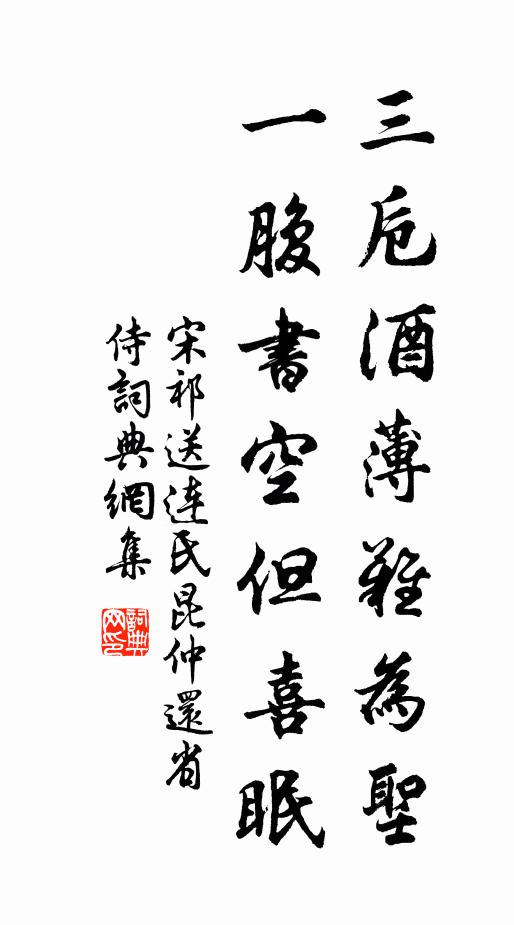 三卮酒薄難為聖
一腹書空但喜眠
宋祁送连氏昆仲還省
侍詞典網集
詞典